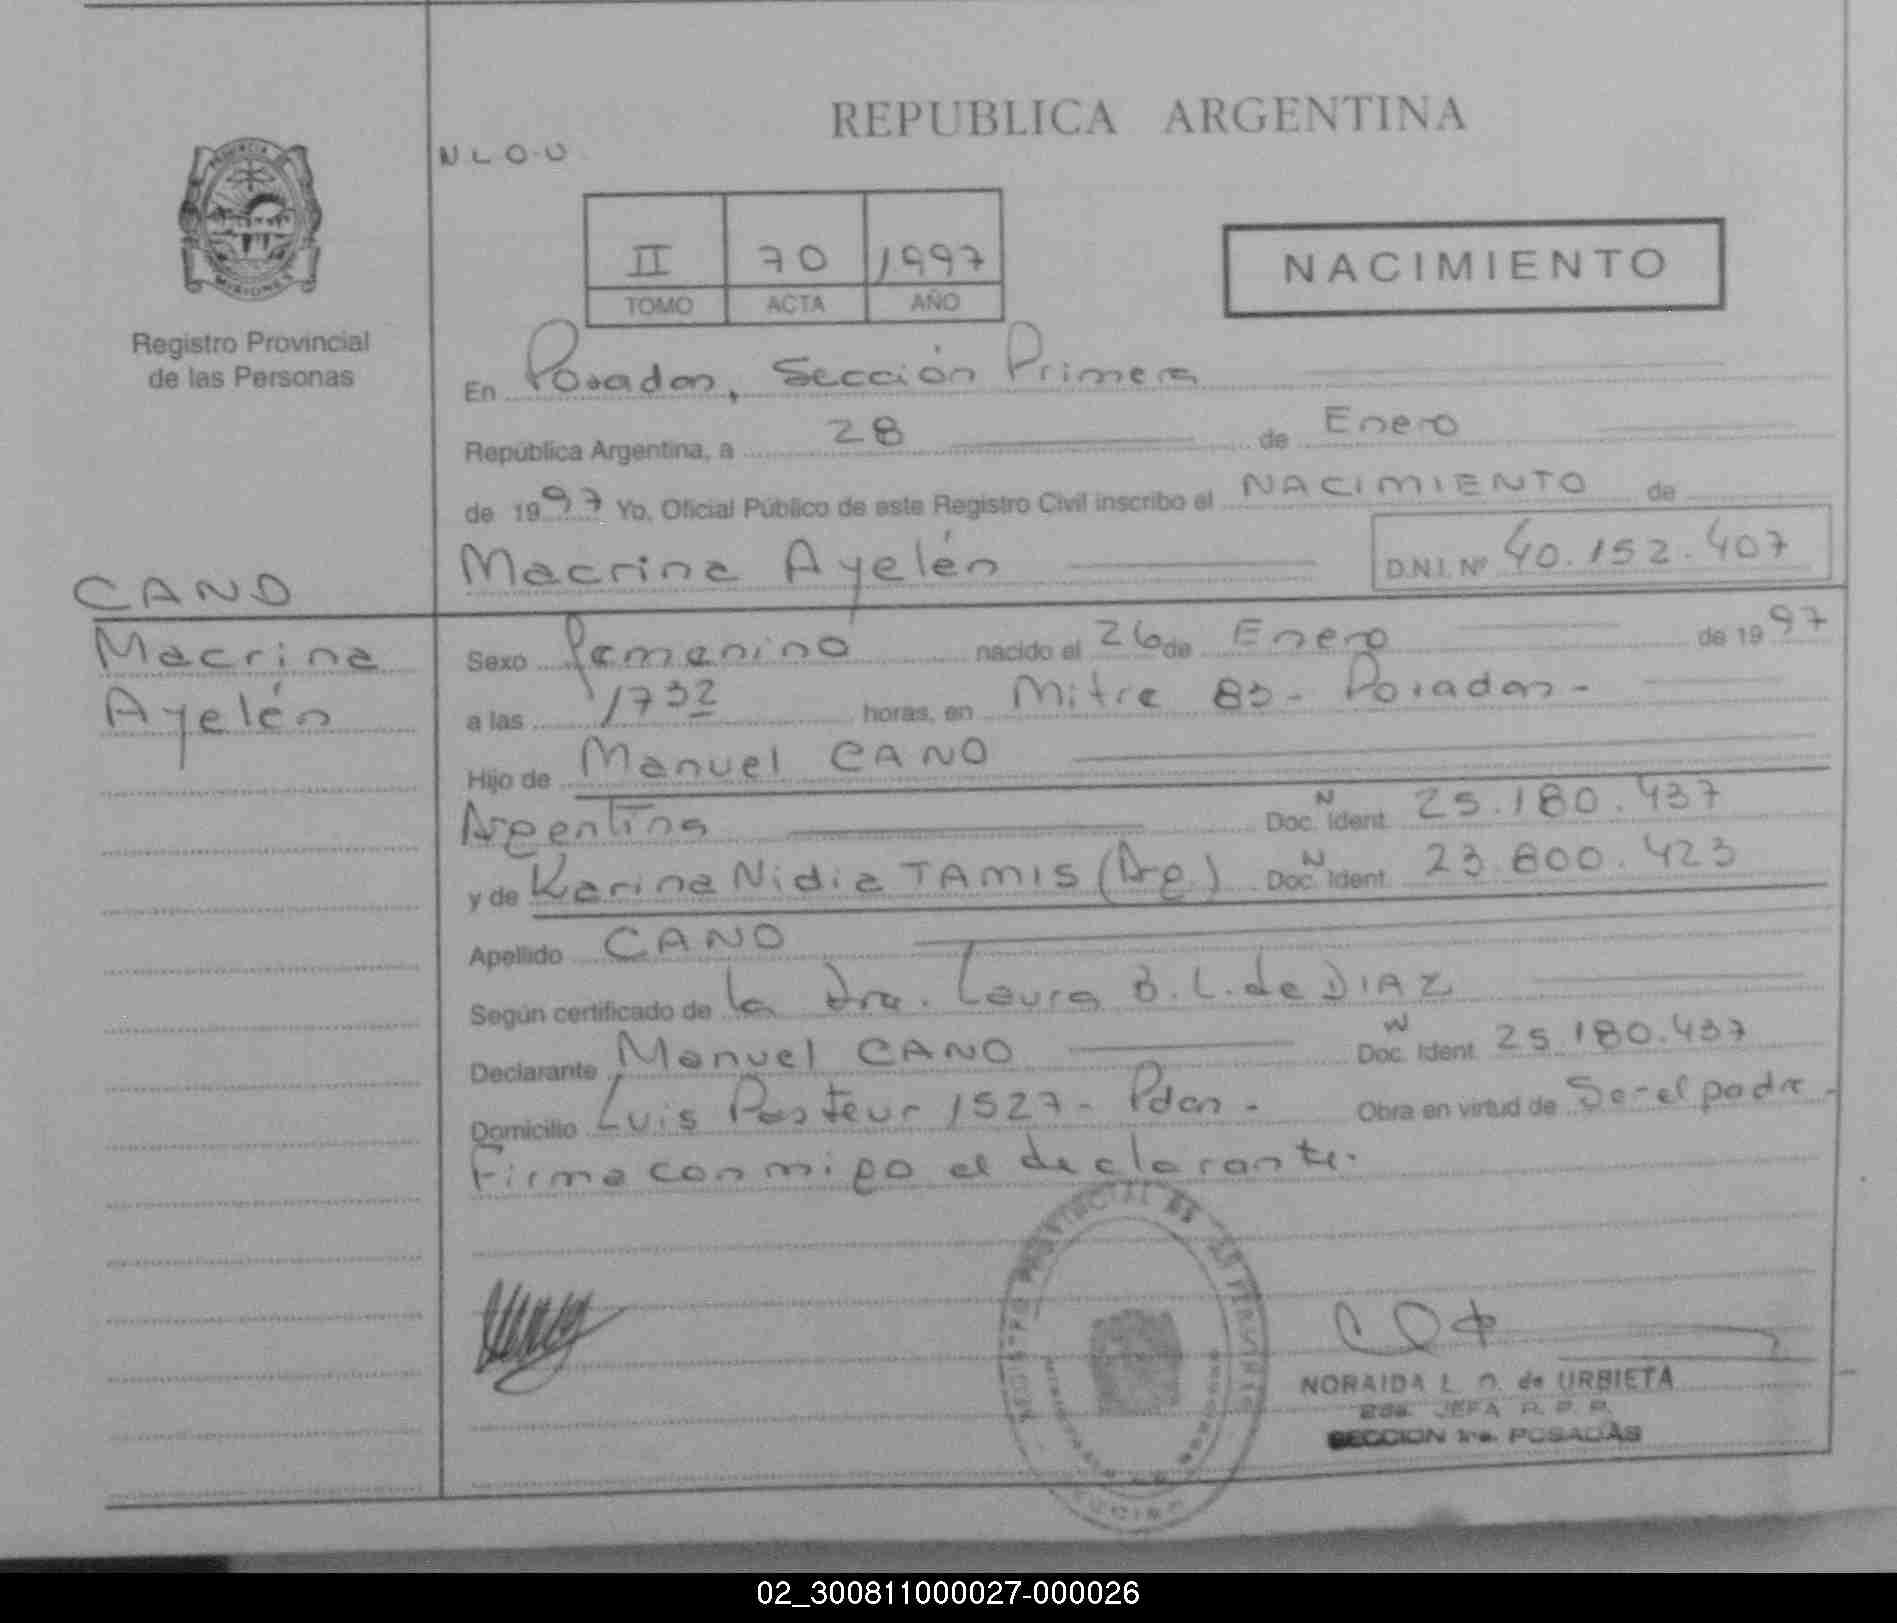 REPUBLICA ARGENTINA
N L O.U
II 70 1997
TOMO ACTA AÑO
NACIMIENTO
PROVINCIA
MISIONES
Registro Provincial
de las Personas
En Posadas, Sección Primera
República Argentina, a 28 de Enero
de 1997 Yo, Oficial Público de este Registro Civil inscribo el NACIMIENTO de
Macrina Ayelén D.N.I. Nº 40.152.407
CANO
Macrina
Ayelén
Sexo femenino nacido el 26 de Enero de 1997
a las 1732 horas, en Mitre 83 - Posadas -
Hijo de Manuel CANO
Argentina Doc. N Ident. 25.180.437
y de Karina Nidia TAMIS (Arg.) Doc. N Ident. 23.800.423
Apellido CANO
Según certificado de la Dra. Laura B. L. de DIAZ
Declarante Manuel CANO Doc. N Ident. 25.180.437
Domicilio Luis Pasteur 1527 - Pdas - Obra en virtud de Ser el padre -
Firma conmigo el declarante.
NORAIDA L. O. de URBIETA
2da. JEFA R. P. P.
SECCION 1ra. POSADAS
02_300811000027-000026